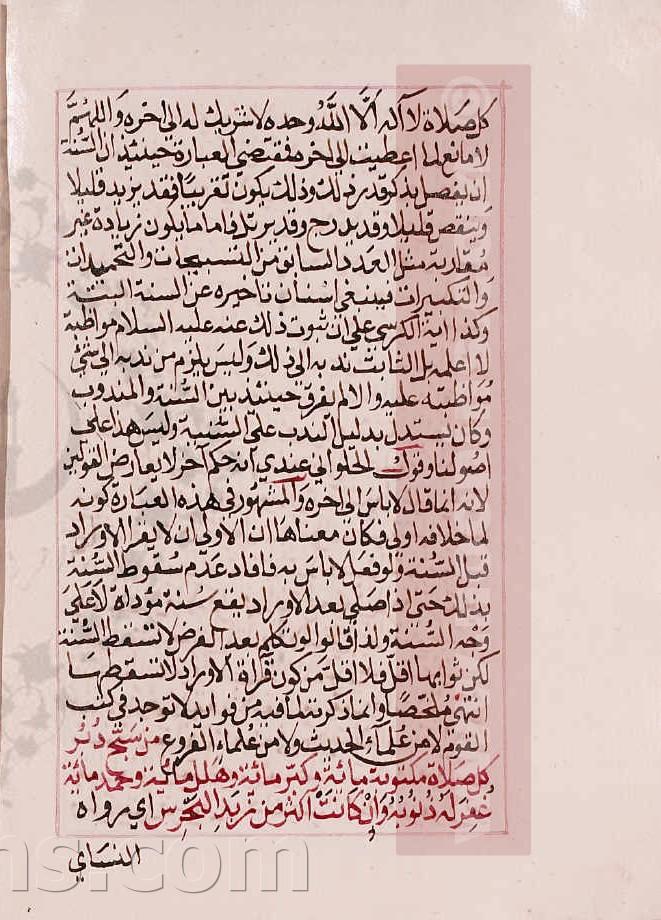 كل صلاة لا اله الا الله وحده لا شريك له الى اخره واللهم
لا مانع لما اعطيت الى اخره فمقتضى العبارة حينئذ ان السنة
ان يفصل بذكر قدر ذلك وذلك يكون تقريبا فقد يزيد قليلا
وينقص قليلا وقد يدرج وقد يرتل فاما ما يكون زيادة غير
مقاربة مثل العدد السابق من التسبيحات والتحميدات
والتكبيرات فينبغي استنان تاخيره عن السنة البتة
وكذا اية الكرسي على ان ثبوت ذلك عنه عليه السلام مواظبة
لا اعلمه بل الثابت ندبه الى ذلك وليس يلزم من ندبه الى شئ
مواظبته عليه والا لم يفرق حينئذ بين السنة والمندوب
وكان يستدل بدليل الندب على السنية وليس هذا على
اصولنا وقول الحلواني عندي انه حكم آخر لا يعارض القولين
لانه انما قال لا باس الى اخره والمشهور في هذه العبارة كونه
لما خلافه اولى فكان معناها ان الاولى ان لا يقرا الاوراد
قبل السنة ولو فعل لا باس به فافاد عدم سقوط السنة
بذلك حتى اذا صلى بعد الاوراد يقع سنة مؤداة لا على
وجه السنة ولذا قالوا لو تكلم بعد الفرض لا تسقط السنة
لكن ثوابها اقل فلا اقل من كون قراة الاوراد لا تسقطها
انتهى ملخصا وانما ذكرته لما فيه من فوايد لا توجد في كتب
القوم لا من علماء الحديث ولا من علماء الفروع من سبح دبر
كل صلاة مكتوبة مائة وكبر مائة وهلل مائة وحمد مائة
غفر له ذنوبه وان كانت اكثر من زبد البحر س اي رواه
النساي
ns.com